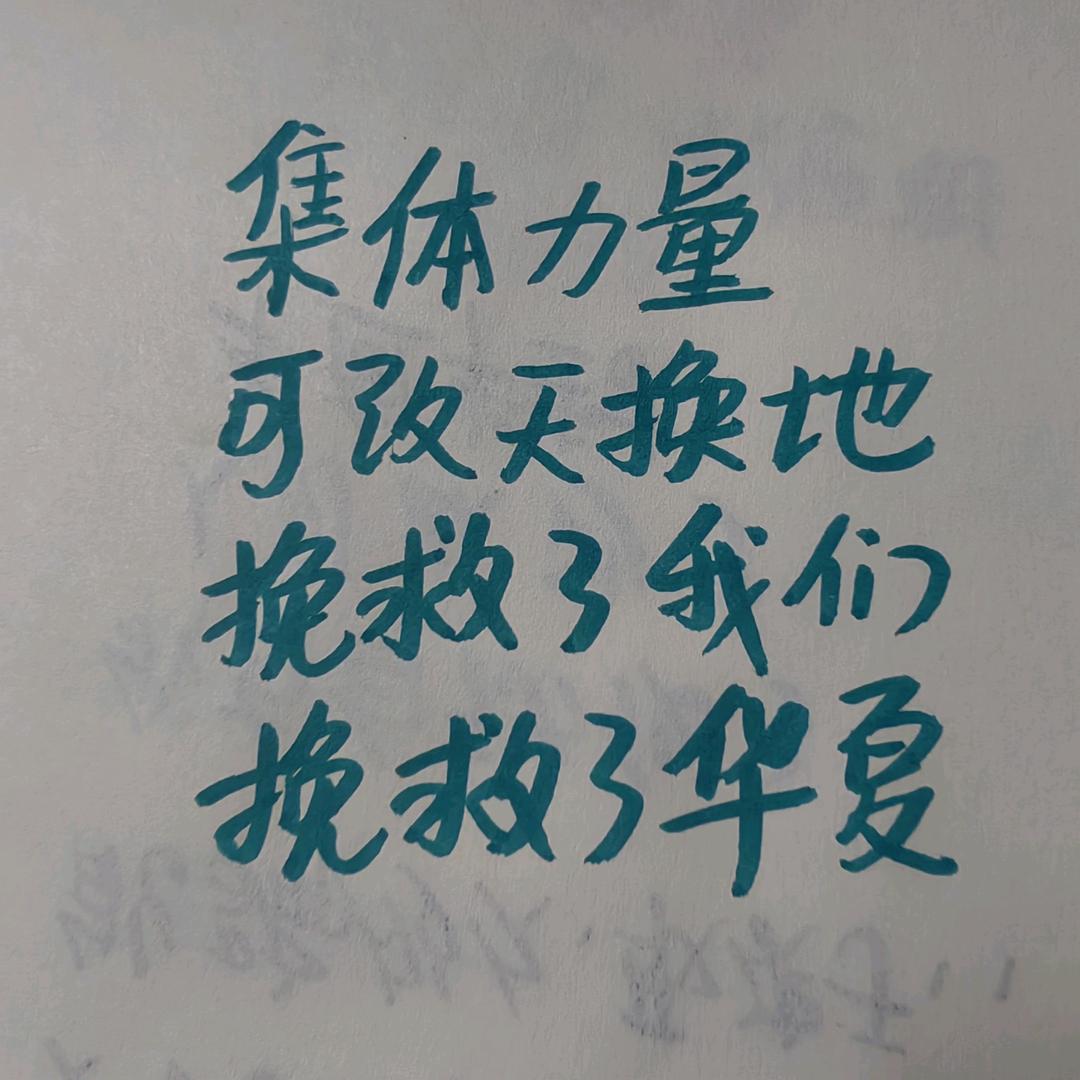 集体力量
可改天换地
挽救了我们
挽救了华夏